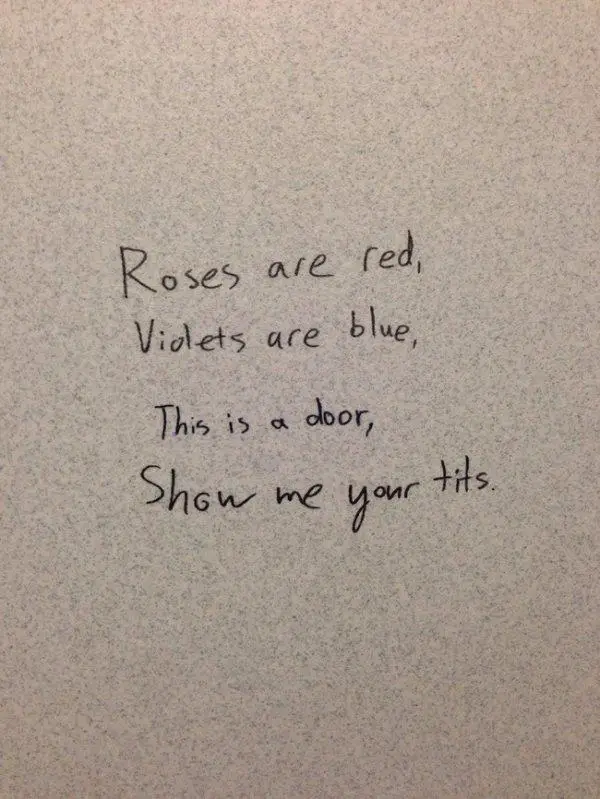 Roses are red,
Violets are blue,
This is a door,
Show me your tits.